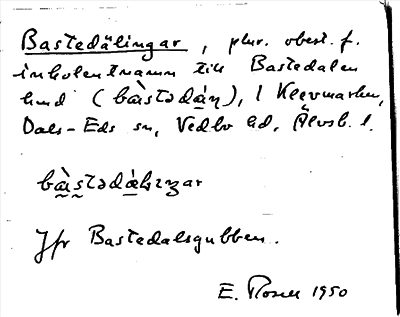 Bastedälingar, plur. obest. f.
inbolentnamn till Bastedalen
hmd (bàstədàn), i Klevmarken,
Dals-Eds sn, Vedbo hd, Älvsb. l.
bàstədàlıŋar
Jfr Bastedalsgubben.
E. Rosell 1950